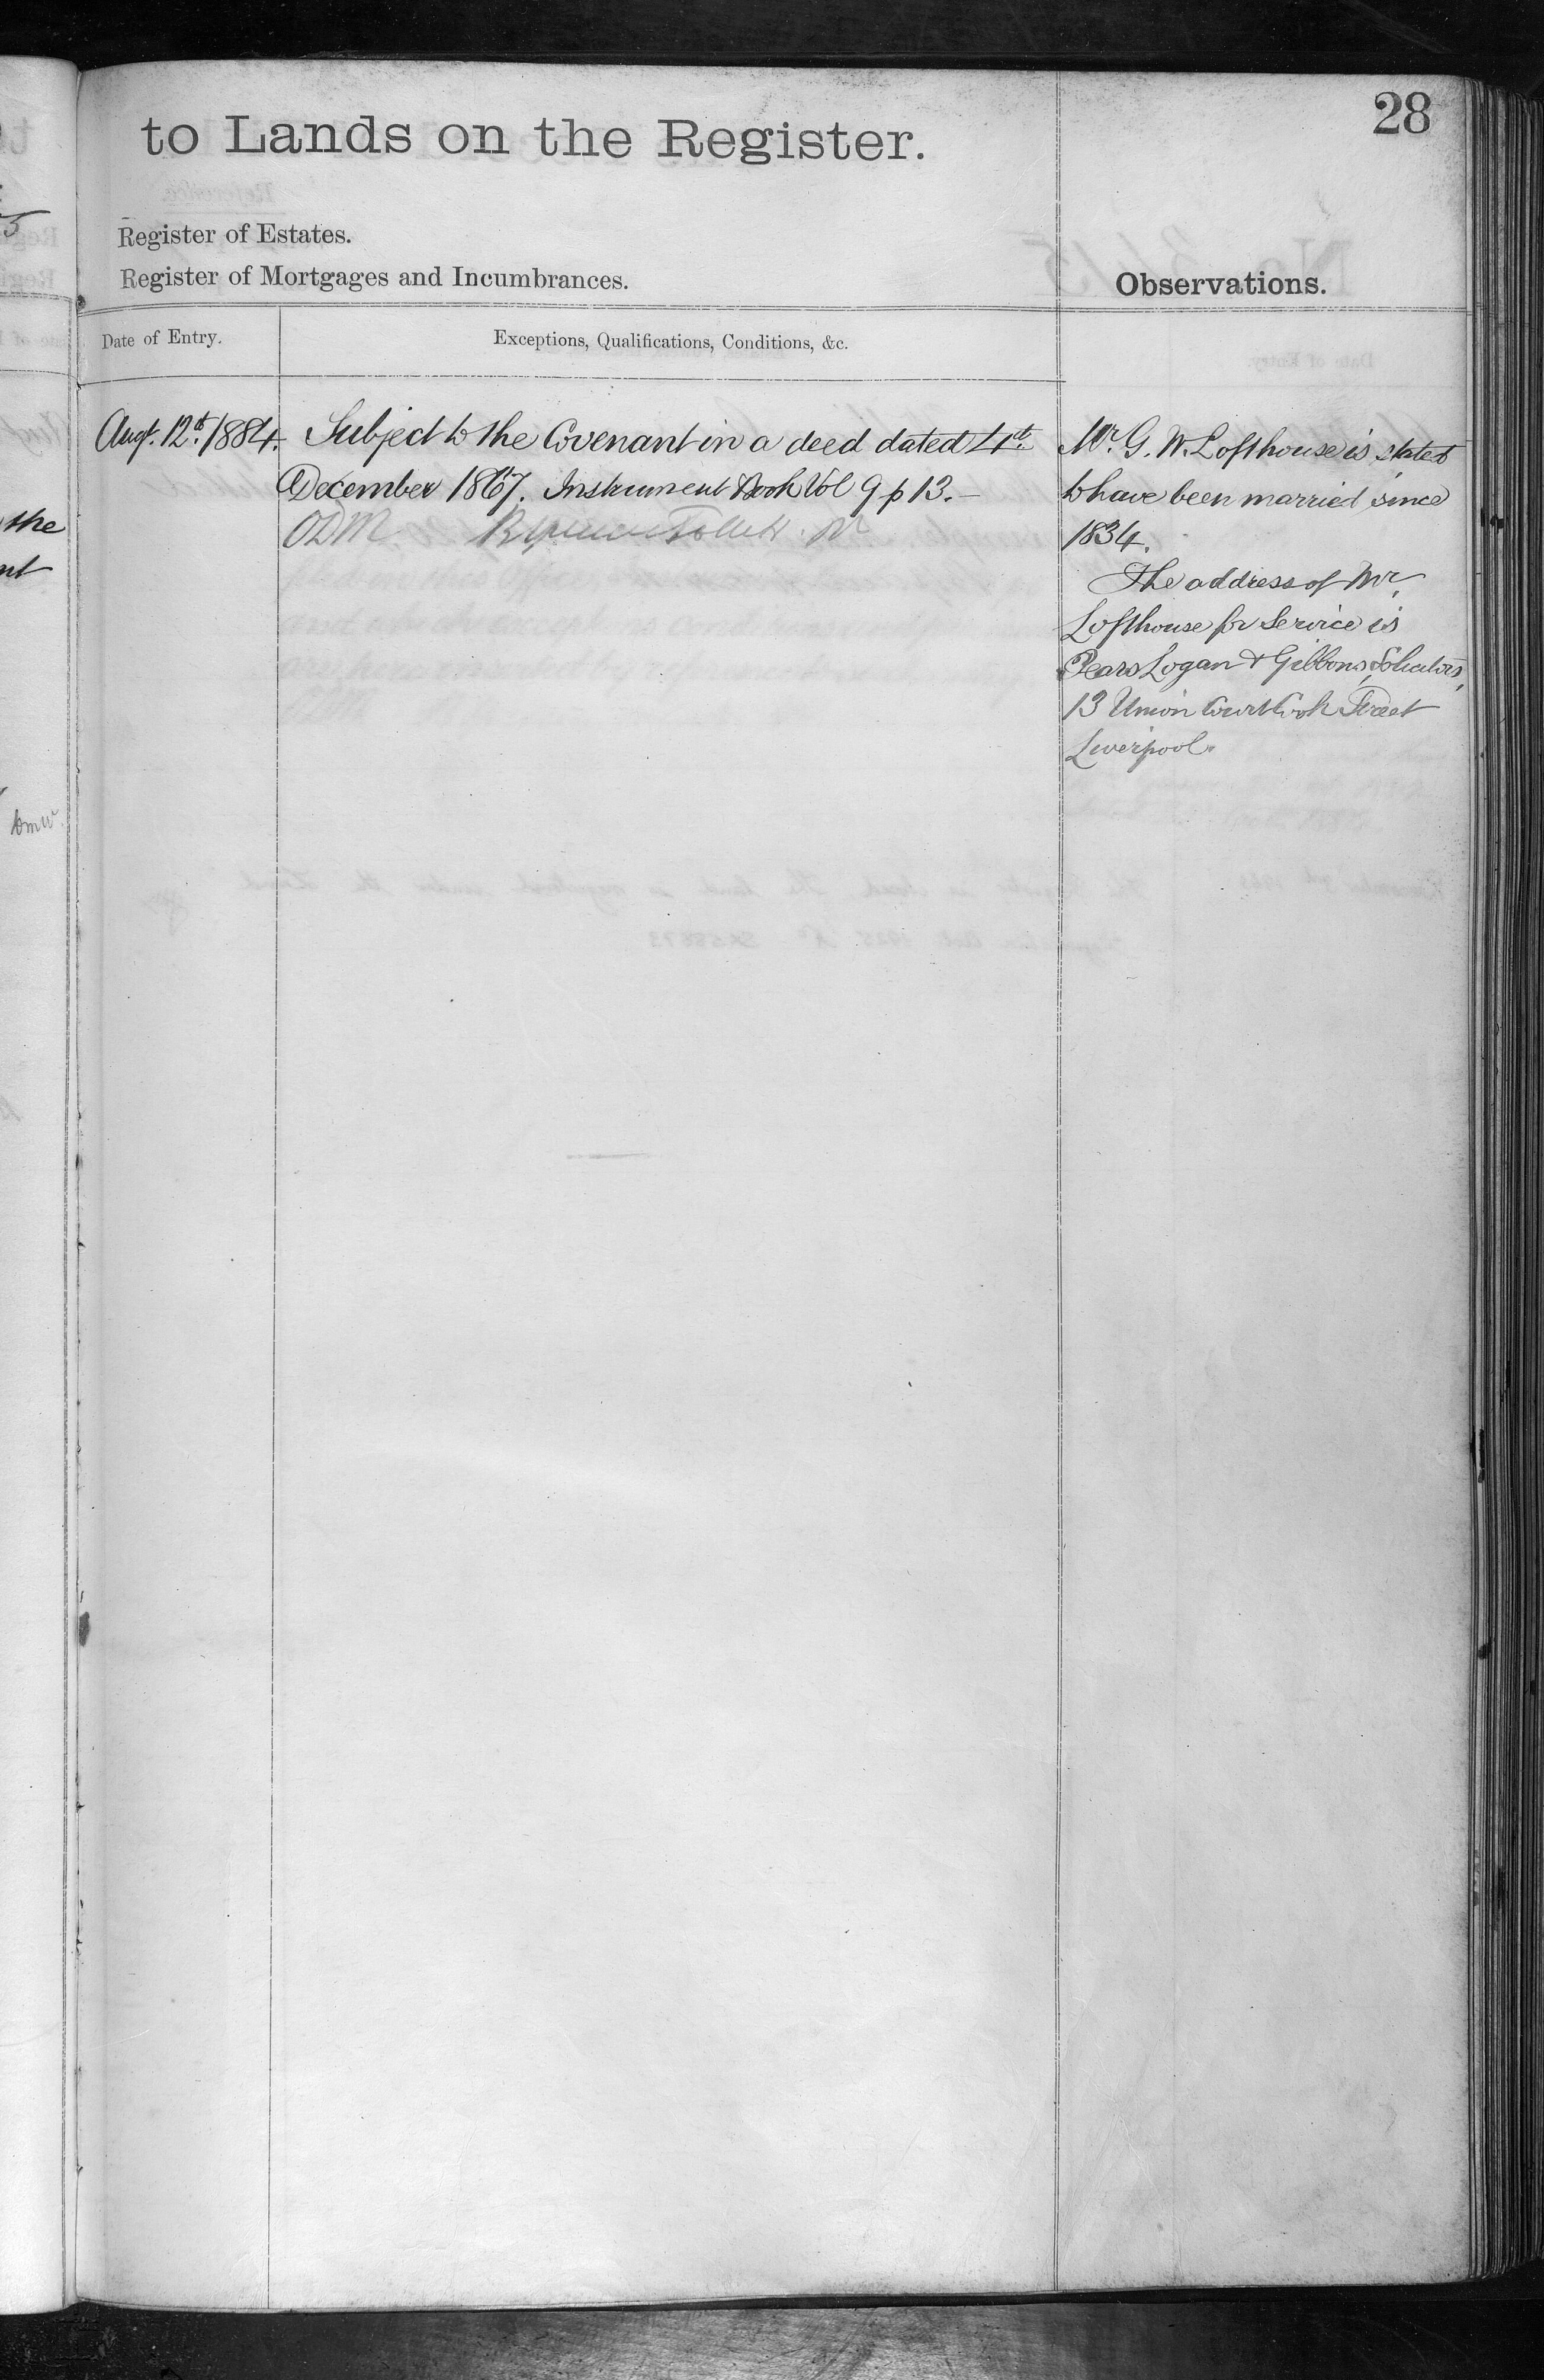 28
to Lands on the Register.
Register of Estates.
Register of Mortgages and Incumbrances.
Observations.
Date of Entry.
Exceptions, Qualifications, Conditions, &c.
Augt. 12th 1884.
Subject to the Covenant in a deed dated 4th
December 1867. Instrument Book Vol 9 p 13.—
ODM.
Mr. G. W. Lofthouse is stated
to have been married since
1834.
The address of Mr.
Lofthouse for Service is
Pears Logan & Gibbons, Solicitors,
13 Union Court Cook Street
Liverpool.
the